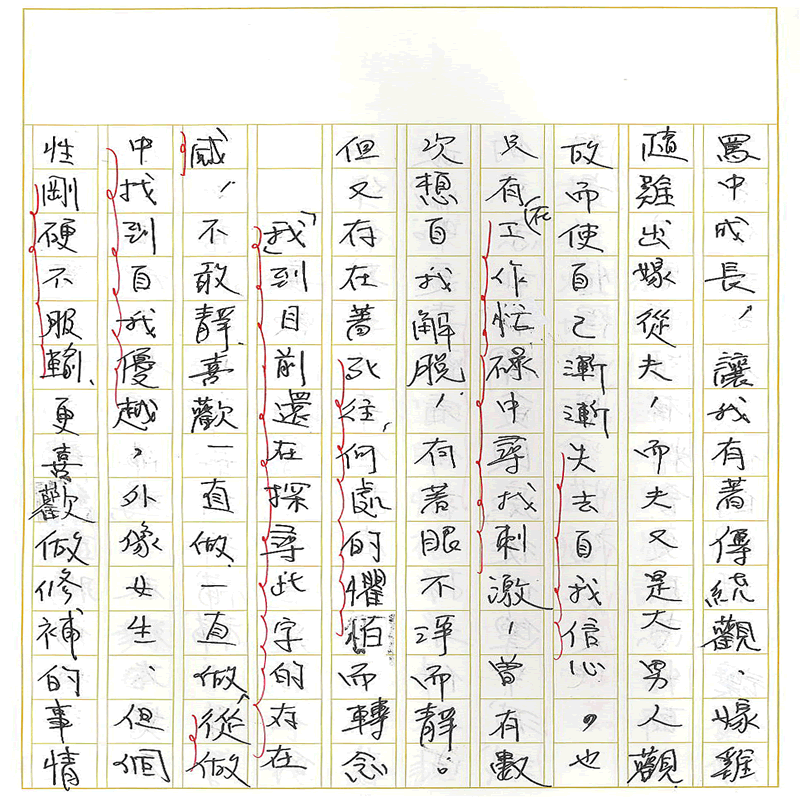 罵中成長，讓我有著傳統觀，嫁雞
隨雞出嫁從夫，而夫又是大男人觀
故而使自己漸漸失去自我信心，也
只有(在)工作忙碌中尋找刺激，曾有數
次想自我解脫，有著眼不淨而靜。
但又存在著死往何處的懼怕而轉念
「我」到目前還在探尋此字的存在
感，不敢靜、喜歡一直做、一直做、從做
中找到自我優越，外像女生，但個
性剛硬不服輸、更喜歡做修補的事情